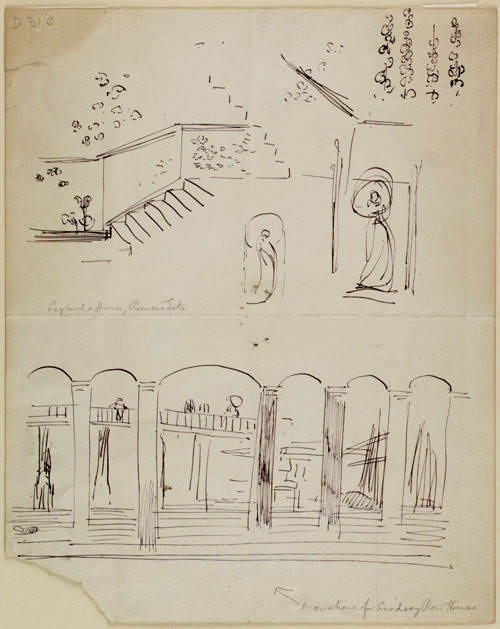 D 318
Leyland's House, Princes Gate
Decorations for Lindsay Row House